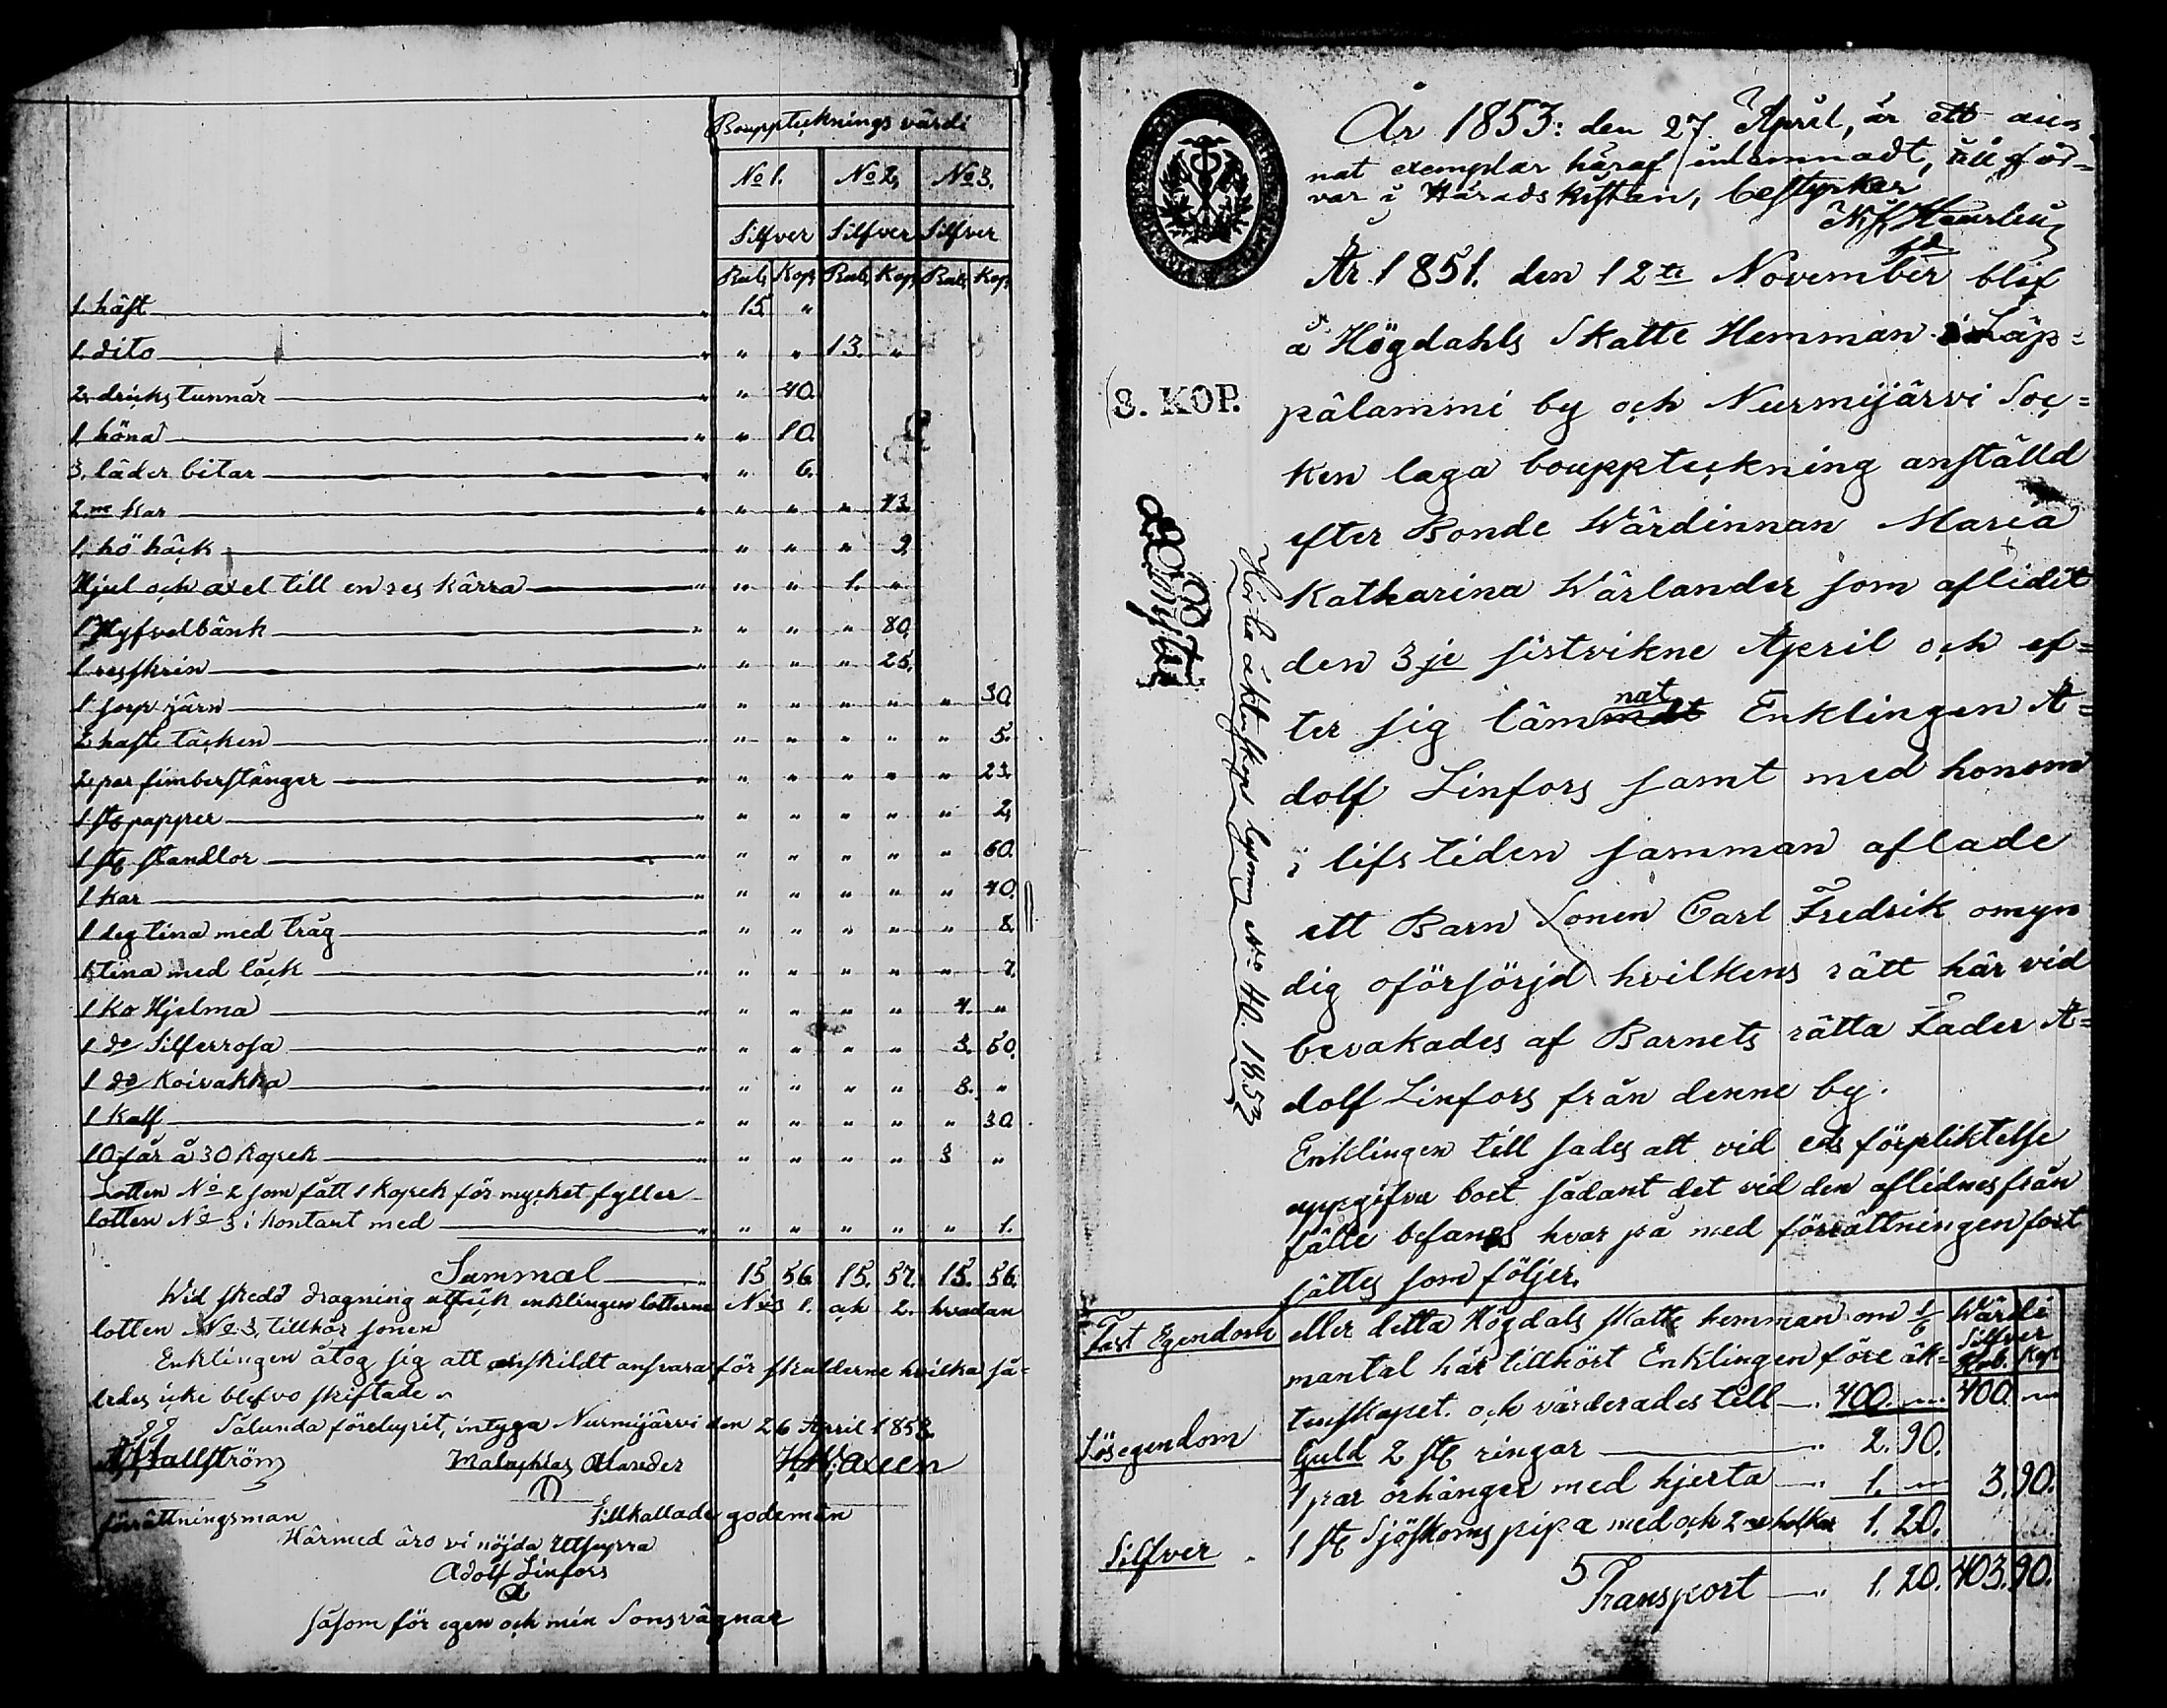 Bouppteknings värdi
No 1. No 2, No 3.
Silfver Silfver Silfver
Rub, Kop, Rub, Kop, Rub, Kop,
1. häst " 15. "
1. dito " " " 13. "
2, dricks tunnar " " 40.
1, höna " " 10.
3, läder bitar " " 6.
2ne Kar " " " " 43.
1. hö häck " " " " 9.
Hjul och axel till en res kärra " " " 1. "
1 Hyfvelbänk " " " " 80,
1 resskrin " " " " 25.
1 järn " " " " " " 30.
2, häst täcken " " " " " " 5.
2, par fimberstänger " " " " " " 23.
1 st papper " " " " " " 2,
1 st standlor " " " " " " 60.
1 Kar " " " " " " 40.
1 deg tina med tråg " " " " " " 8.
1, tina med läck " " " " " " 7.
1 Ko Hjelma " " " " " 4. "
1 do Silferrosa " " " " " 3. 50.
1 do Koivakka " " " " " 3. "
1 Kalf " " " " " " 30.
10 får å 30 Kopek " " " " " 3 "
Lotten No 2 som fått 1 Kopek för mycket fyller
lotten No 3 i Kontant med " " " " " " 1.
Summa 15 56. 15. 57. 15. 56.
Wid skedd dragning enklingen lotterne No 1. och 2. hvadan
lotten No 3, tillhör sonen
Enklingen åtog sig att enskildt ansvara för skulderne hvilka så-
ledes icke blefvo skiftade
Sålunda förelupit, intyga Nurmijärvi den 26 April 1853.
Hallström Malachias Alander
förrättningsman Tillkallade godemän
Härmed äro vi nöjda Utsupra
Adolf Linfors
såsom för egen och min Sons vägnar
År 1853: den 27 April, är ett an-
nat exemplar häraf inlemnadt, till för-
var i Härads Kistan, bestyrker
År 1851. den 12te November blef
å Högdahls Skatte Hemman i Läp=
3. KOP.
pälammi by och Nurmijärvi Soc=
ken laga bouppteckning anställd
efter Bonde Wärdinnan Maria
Katharina Wärlander som aflidit
den 3je sistvikne April och ef=
nat
ter sig läm Enklingen A=
dolf Linfors samt med honom
i lifs tiden samman aflade
ett Barn Sonen Carl Fredrik omyn
dig oförsörjd hvilkens rätt här vid
bevakades af Barnets rätta Fader A=
dolf Linfors från denne by.
Enklingen till sades att vid eds förpliktelse
uppgifva boet sådant det vid den aflidnes från
fälle befanns hvar på med förrättningen fort
sättes som följer.
lysning No 40. 1853
Fast Egendom eller detta Högdals skatte hemman om 1/6 Wärdi
Silfver
mantal här tillhört Enklingen före äk= Rub. Kop
tenskapet. och värderades till 400. " 400. "
Lösegendom Guld 2 st ringar " 2. 90.
1 par örhänger med hjerta " 1. " 3. 90.
Silfver 1 st Sjöskoms pipa med och 2ne holkar 1. 20.
Transport 1. 20. 403. 90.